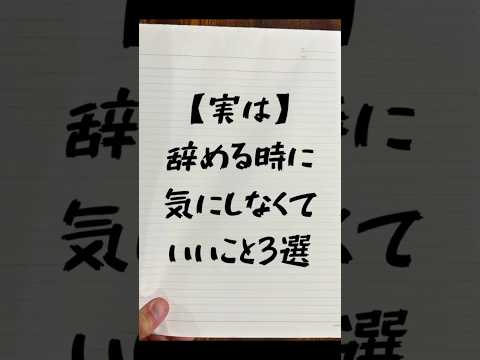 【実は】
辞める時に
気にしなくて
いいこと3選